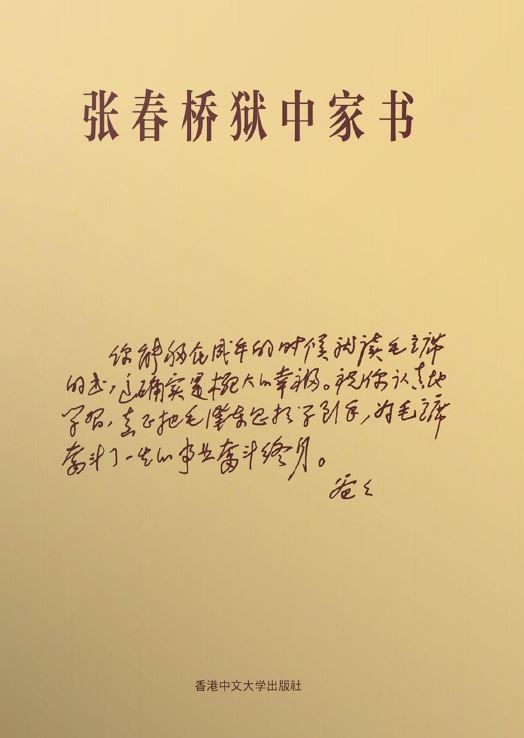 张春桥狱中家书
你能够在成年的时候就读毛主席
的书，这确实是极大的幸福。祝你认真地
学习，真正把毛泽东思想学到手，为毛主席
奋斗了一生的事业奋斗终身。
爸爸
香港中文大学出版社